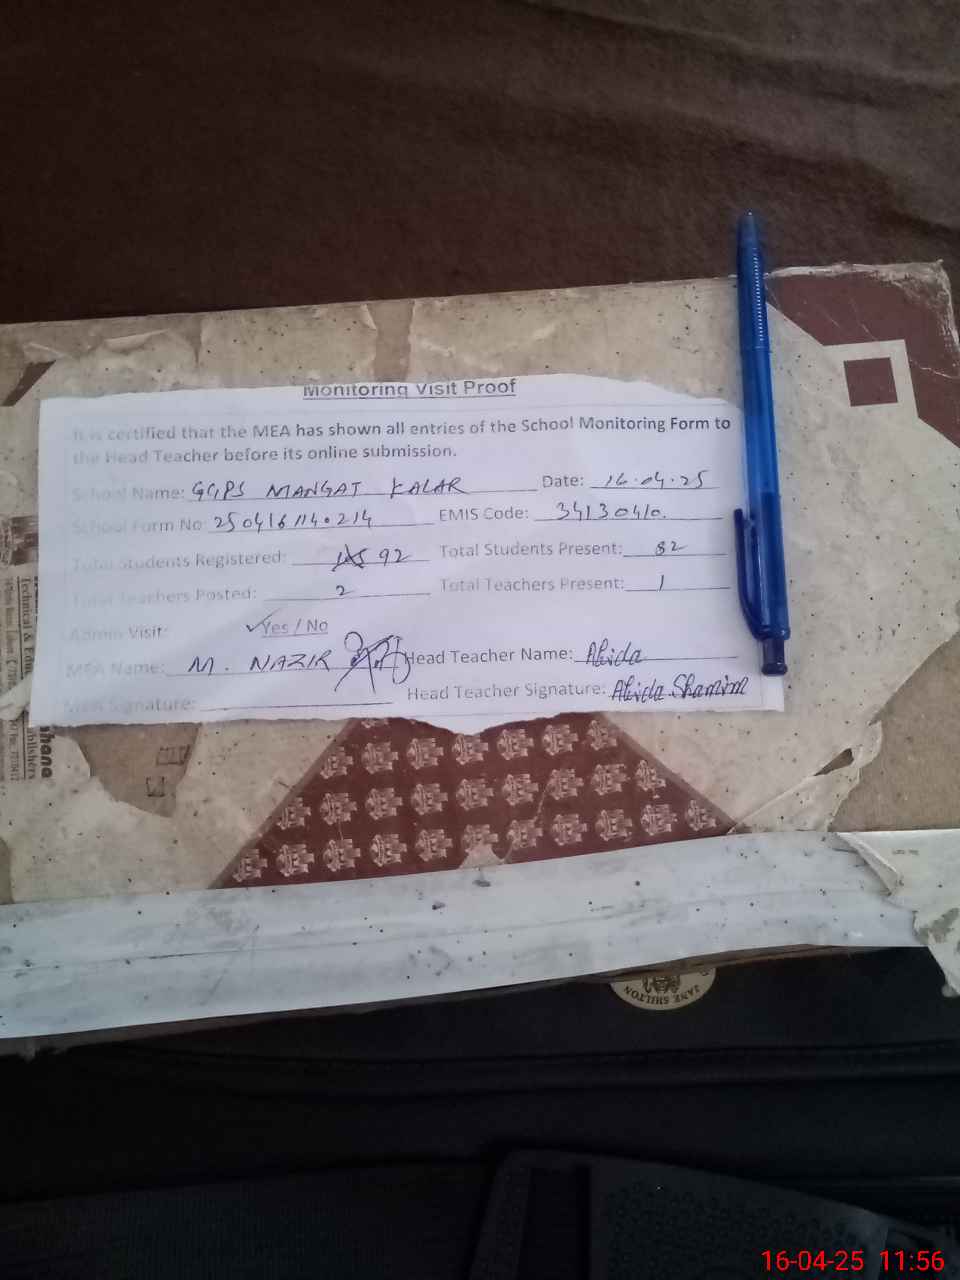 Monitoring Visit Proof
It is certified that the MEA has shown all entries of the School Monitoring Form to
the Head Teacher before its online submission.
School Name: GGPS MANGAT KALAR Date: 16.04.25
School Form No: 2504161140214 EMIS Code: 34130410.
Total Students Registered: 92 Total Students Present: 82
Total Teachers Posted: 2 Total Teachers Present: 1
Admin Visit: ✓Yes / No
MEA Name: M. NAZIR Head Teacher Name: Abida
MEA Signature: Head Teacher Signature: Abida Shamim
Technical & Edu
JANE SHILTON
16-04-25 11:56